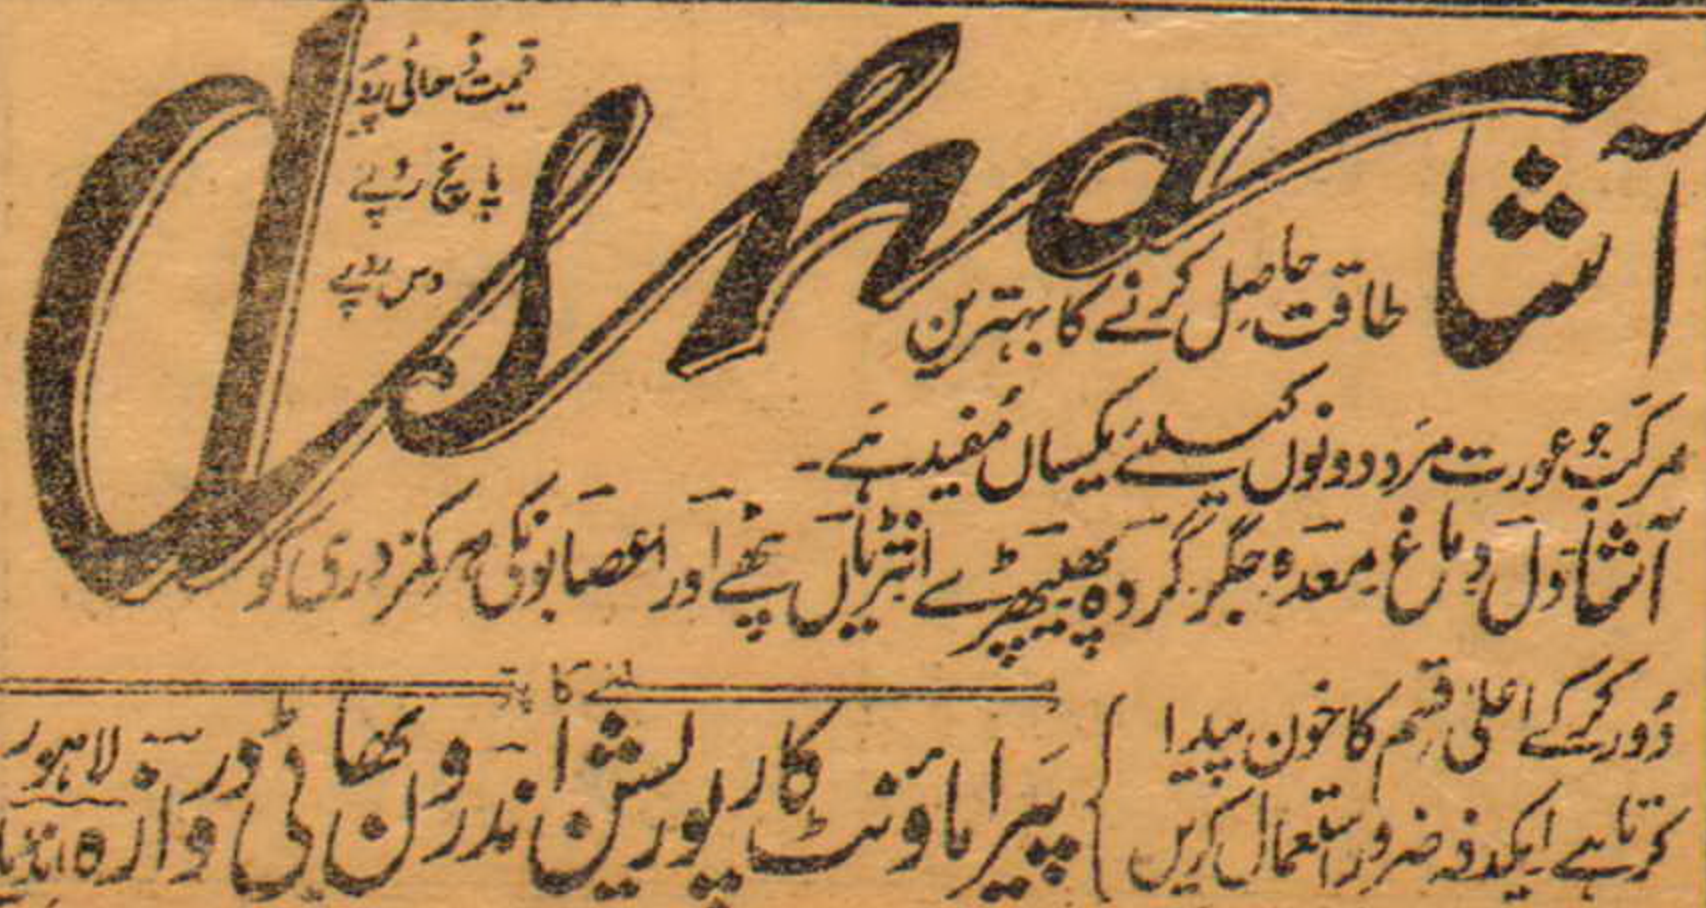 Asha
قیمت ڈھائی روپیہ
پانچ روپے
دس روپے
آشا
طاقت حاصل کرنے کا بہترین
مرکب جو عورت مرد دونوں کیلئے یکساں مفید ہے۔
آشا دل دماغ معدہ جگر گردہ پھیپھڑے انتڑیاں پٹھے اور اعصابونکی ہر کمزدری کو
دُور کر کے اعلیٰ قسم کا خون پیدا
کرتا ہے ایکدفہ ضرور استعمال کریں
ملنے کا پتہ
پیراماؤنٹ کارپوریشن اندرون بھاٹی دروازہ لاہور